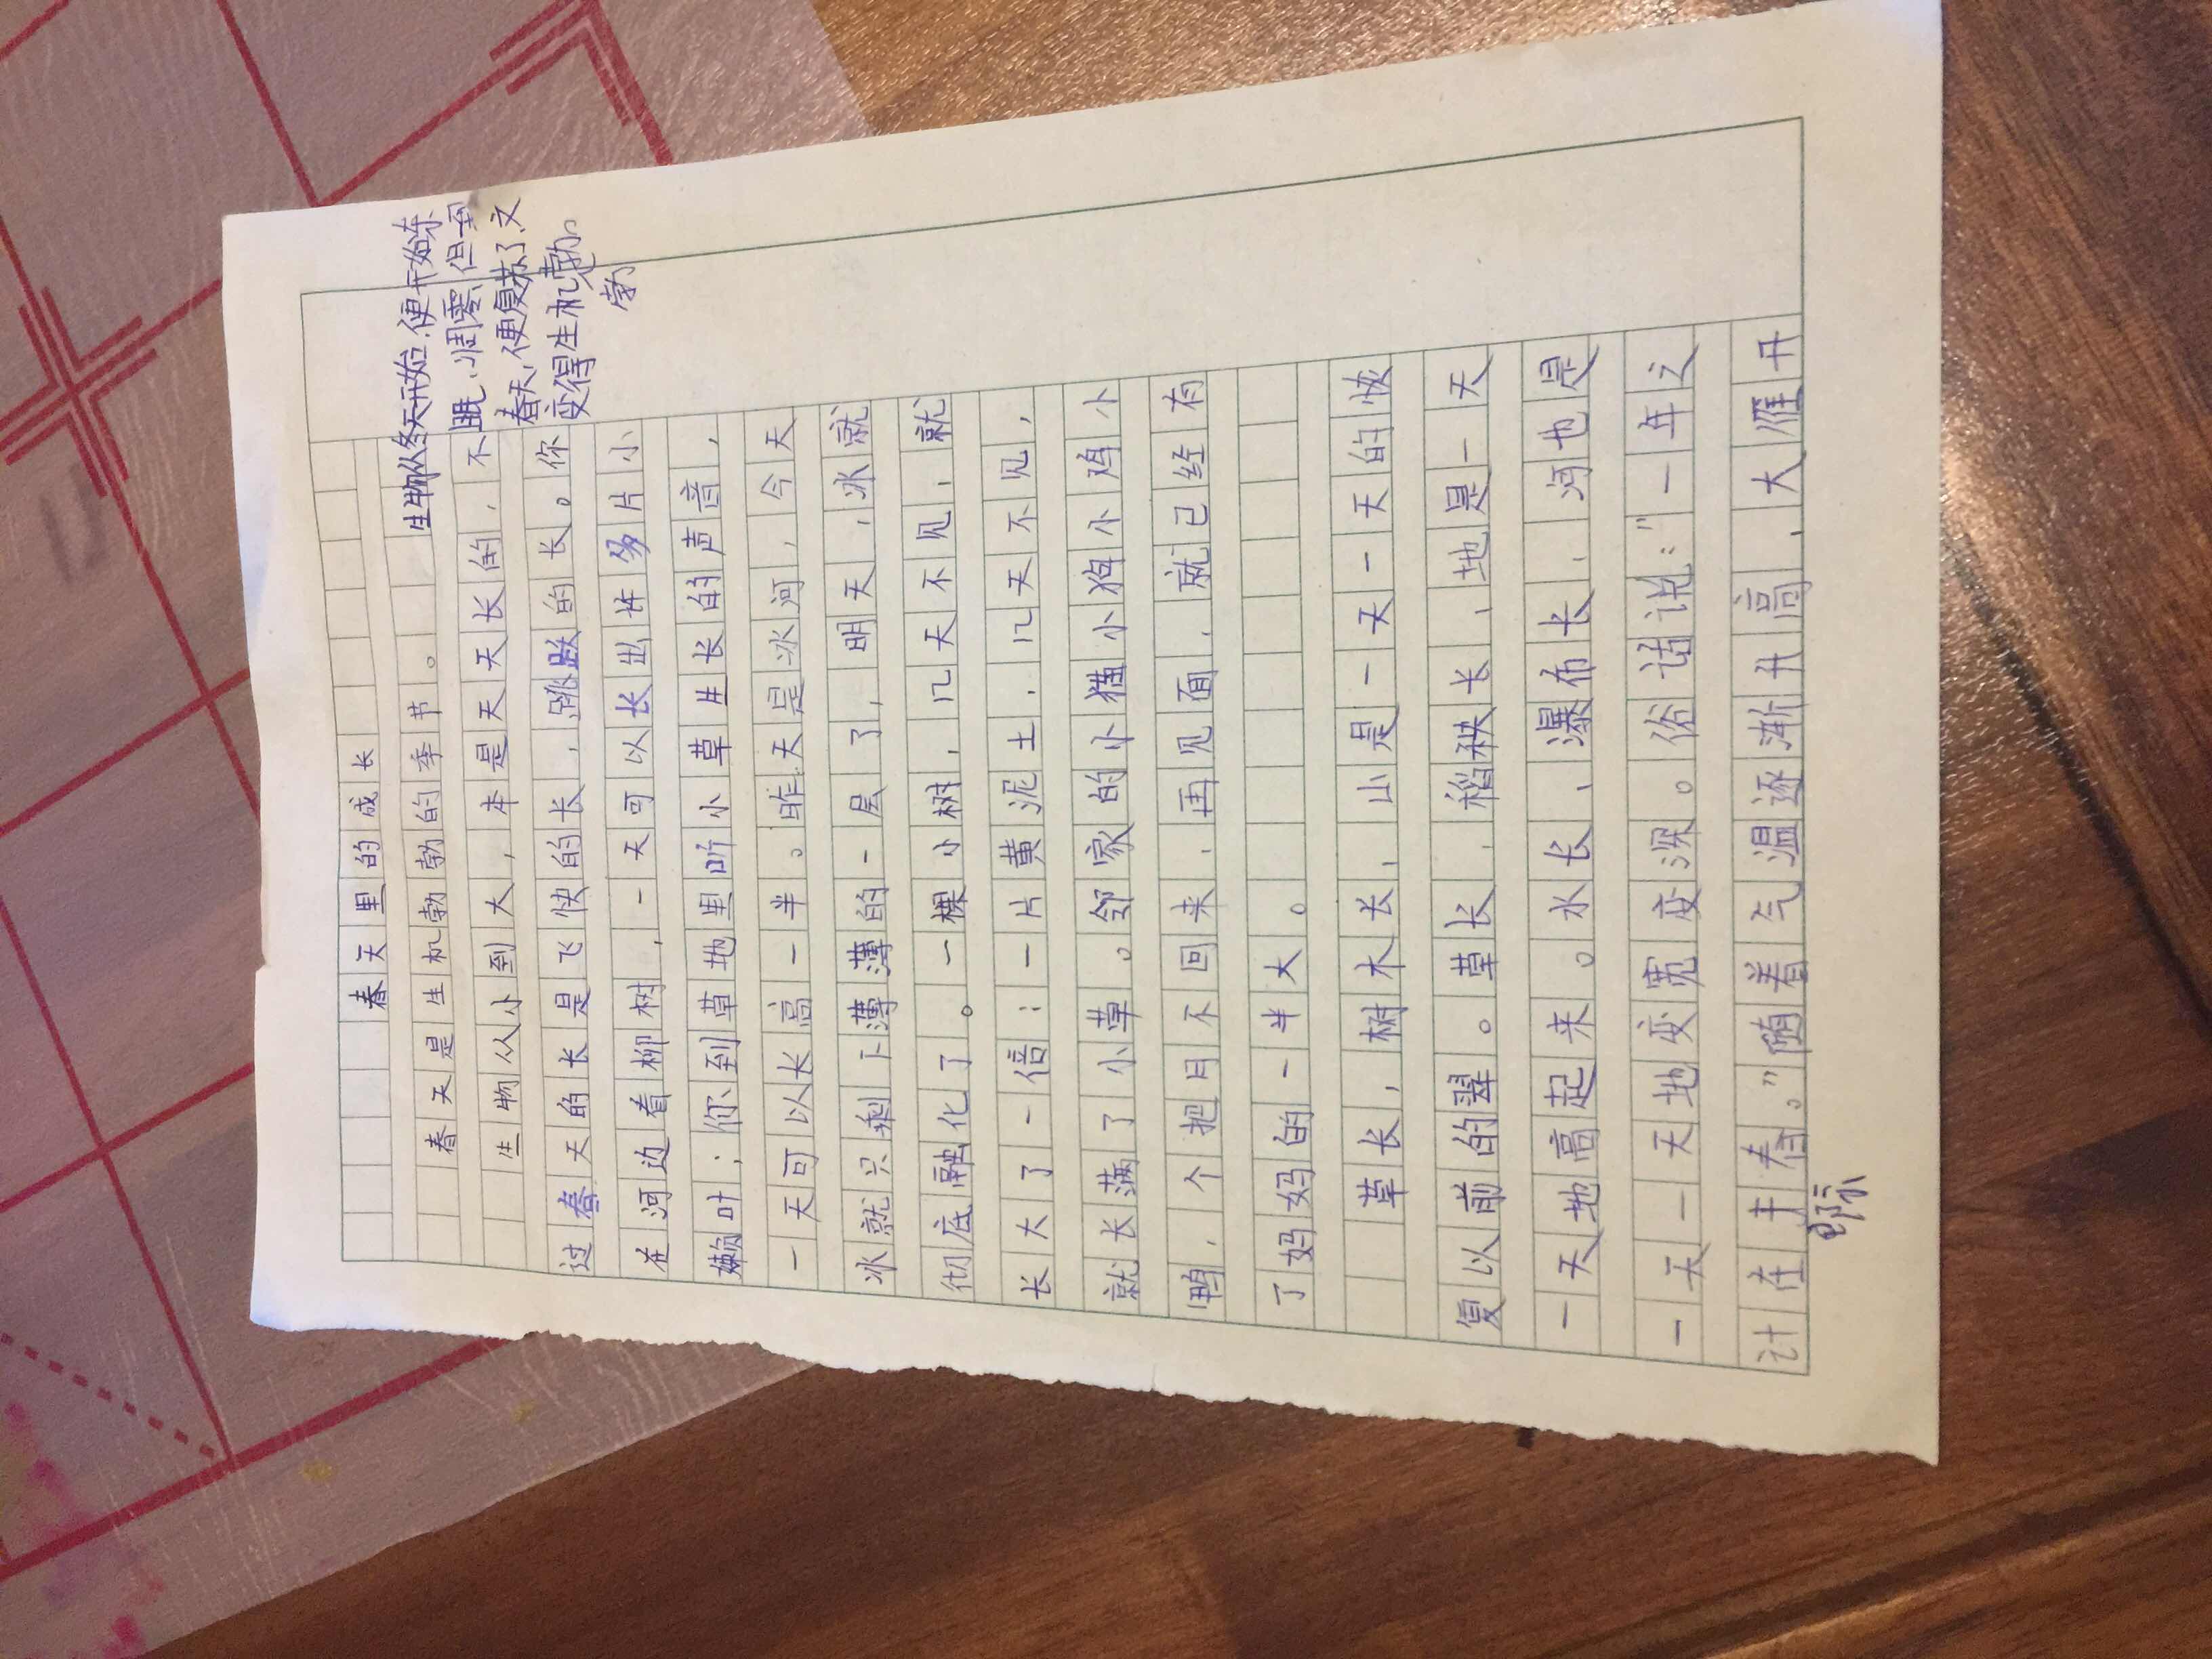 春天里的成长
春天是生机勃勃的季节。
生物从冬天开始,便开始冬
眠、凋零,但一到
春天,便复苏了,又
变得生机勃
勃。
生物从小到大,本是天天长的,不
过春天的长是飞快的长,跳跃的长。你
在河边看柳树,一天可以长出许多片小
嫩叶;你到草地里听小草生长的声音,
一天可以长高一半。昨天是冰河,今天
冰就只剩下薄薄的一层了,明天,冰就
彻底融化了。一棵小树,几天不见,就
长大了一倍;一片黄泥土,几天不见,
就长满了小草。邻家的小猫小狗小鸡小
鸭,个把月不回来,再见面,就已经有
了妈妈的一半大。
草长,树木长,山是一天一天的恢
复以前的翠。草长,稻秧长,地是一天
一天地高起来。水长、瀑布长,河也是
一天一天地变宽变深。俗话说:"一年之
计在于春。"随着气温逐渐升高,大雁开